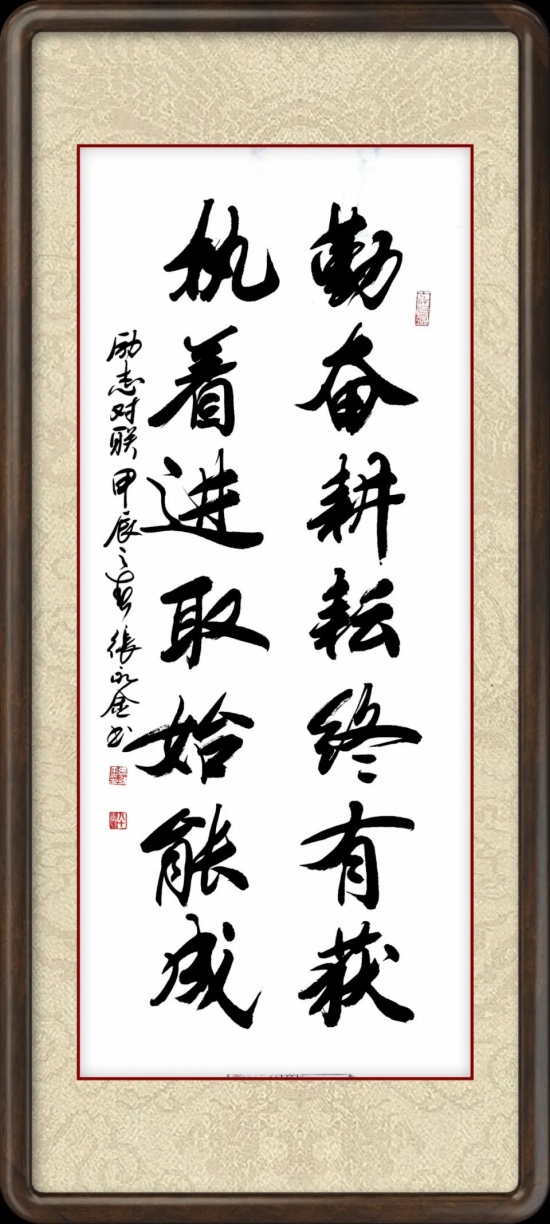 勤奋耕耘终有获
执着进取始能成
励志对联甲辰之春张永金书